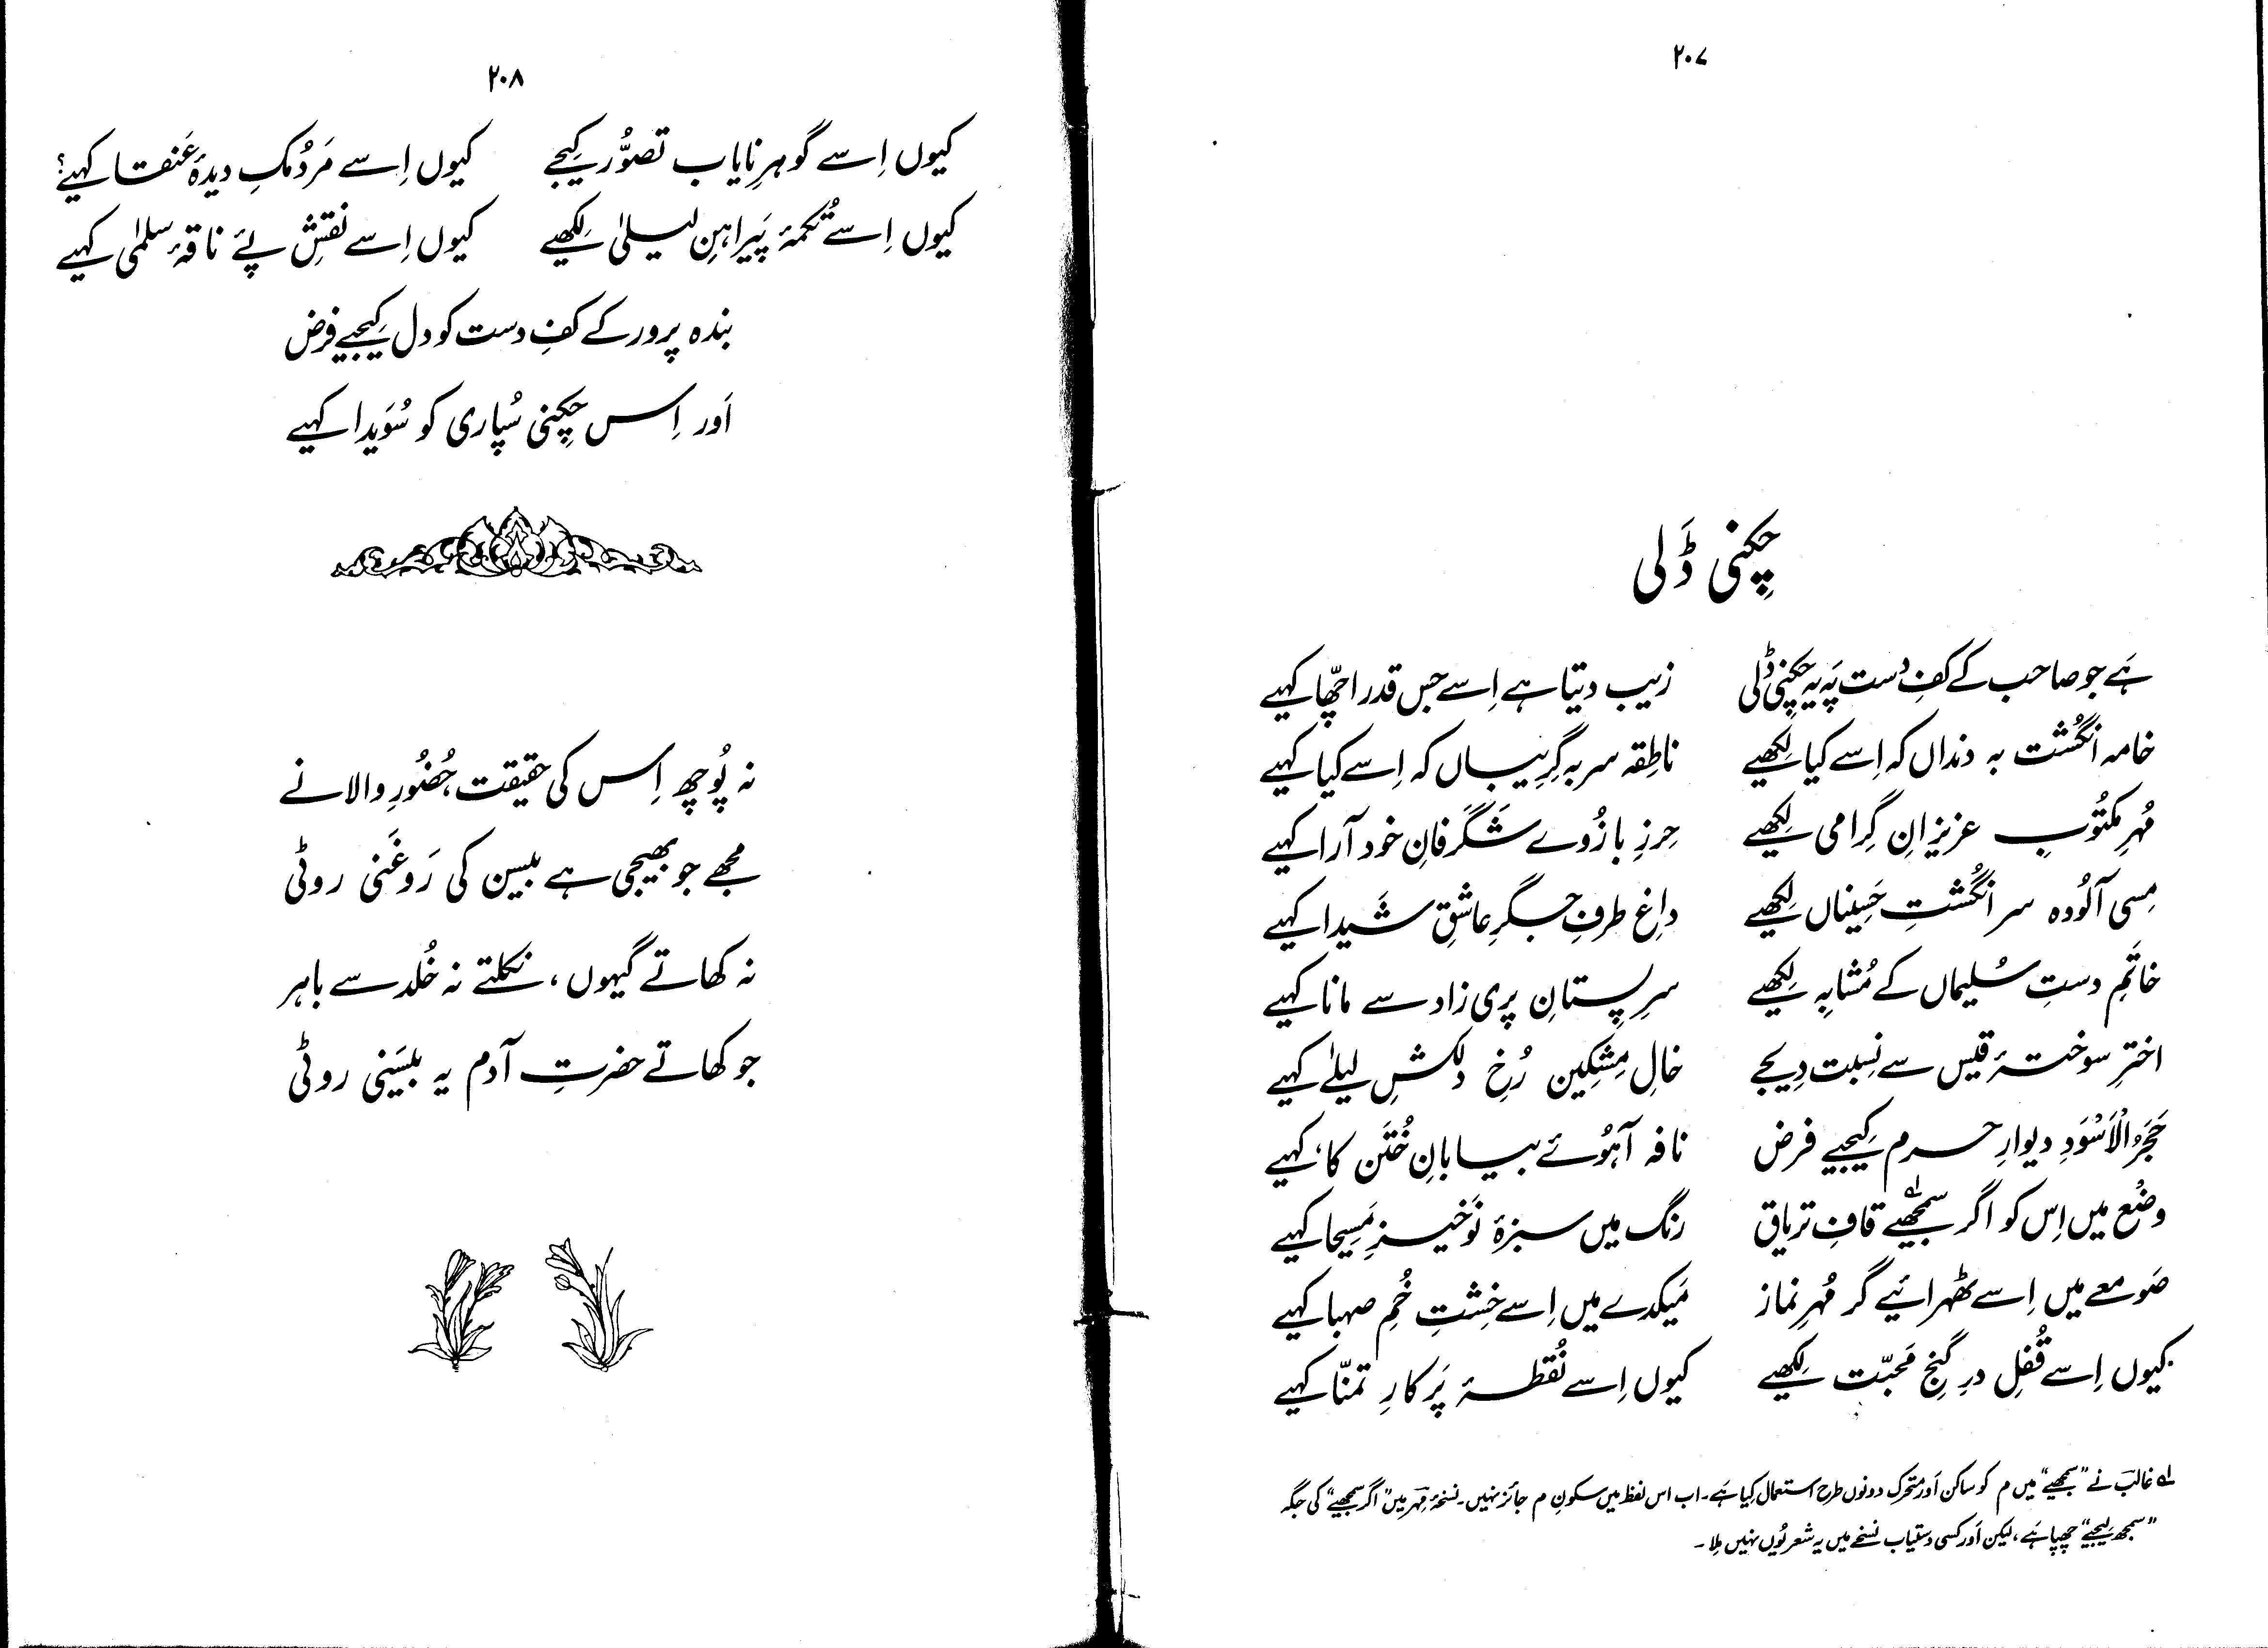 ۲۰۷
چِکنی ڈَلی
ہَے جو صاحب کے کفِ دست پَہ یہ چِکنی ڈلی زیب دیتا ہے اِسے جس قدر اچھّا کہیے
خامہ انگُشت بہ دنداں کہ اِسے کیا لِکھیے ناطِقہ سر بہ گرِیباں کہ اِسے کیا کہیے
مُہرِ مکتُوبِ عزیزانِ گِرامی لِکھیے حِرزِ بازُوے شگَرفانِ خود آرا کہیے
مِسی آلُودہ سر انگُشتِ حَسِیناں لِکھیے داغِ طرفِ جِگرِ عاشقِ شَیدا کہیے
خاتَمِ دستِ سُلیماں کے مُشابِہ لِکھیے سرِ پِستانِ پری زاد سے مانا کہیے
اخترِ سوختۂ قیس سے نِسبت دِیجے خالِ مِشکِین رُخِ دلکشِ لیلےٰ کہیے
حَجَرُ الْاَسْوَدِ دیوارِ حرم کِیجیے فرض نافہ آہُوئے بیابانِ خُتَن کا، کہیے
وضْع میں اِس کو اگر سمجھیے لہ قافِ تریاق رنگ میں سبزۂ نَوخیزِ مَسِیحا کہیے
صَومعے میں اِسے ٹھہرائیے گر مُہرِ نماز مَیکدے میں اِسے خِشتِ خُمِ صہبا کہیے
کیوں اِسے قُفلِ درِ گنجِ مَحبّت لِکھیے کیوں اِسے نُقطۂ پَرکارِ تمنّا کہیے
لہ غالبؔ نے "سمجھیے" میں م کو ساکن اَور متحرک دونوں طرح استعمال کِیا ہَے۔ اب اس لفظ میں سکونِ م جائز نہیں۔ نسخۂ مِہرؔ میں "اگر سمجھیے" کی جگہ
"سمجھ لِیجیے" چھپا ہَے، لیکن اَور کسی دستیاب نسخے میں یہ شعر یُوں نہیں مِلا۔
۲۰۸
کیوں اِسے گوہرِ نایاب تصوُّر کِیجے کیوں اِسے مَردُمکِ دیدۂ عَنقا کہیے؟
کیوں اِسے تُکمۂ پَیراہنِ لیلیٰ لِکھیے کیوں اِسے نقشِ پئے ناقۂ سلمیٰ کہیے
بندہ پرور کے کفِ دست کو دل کِیجیے فرض
اَور اِس چِکنی سُپاری کو سُوَیدا کہیے
نہ پُوچھ اِس کی حقیقت، حُضُورِ والا نے
مجھے جو بھیجی ہے بیسن کی رَوغَنی روٹی
نہ کھاتے گیہوں، نکلتے نہ خُلد سے باہر
جو کھاتے حضرتِ آدم یہ بیسَنی روٹی